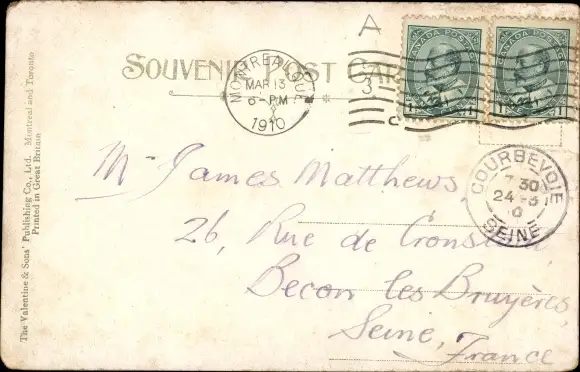 A
SOUVENIR POST CARD
MONTREAL QUE.
MAR 13
6-PM
1910
3
C
CANADA POSTAGE
CANADA POSTAGE
COURBEVOIE
7 30
24 - 3
10
SEINE
Mr James Matthews,
26, Rue de
Becon les Bruyères
Seine, France
The Valentine & Sons' Publishing Co., Ltd. Montreal and Toronto
Printed in Great Britain